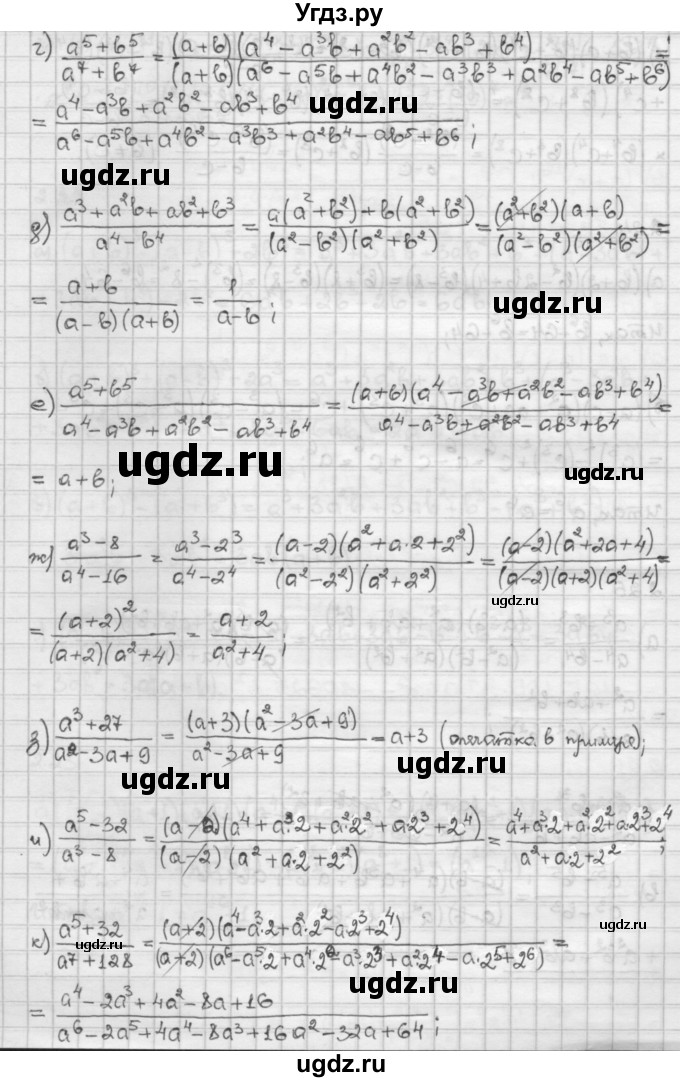 Угдз.ру
г) (a⁵+b⁵)/(a⁷+b⁷) = ((a+b)(a⁴-a³b+a²b²-ab³+b⁴))/((a+b)(a⁶-a⁵b+a⁴b²-a³b³+a²b⁴-ab⁵+b⁶)) =
= (a⁴-a³b+a²b²-ab³+b⁴)/(a⁶-a⁵b+a⁴b²-a³b³+a²b⁴-ab⁵+b⁶);
ugdz.ru
ugdz.ru
д) (a³+a²b+ab²+b³)/(a⁴-b⁴) = (a(a²+b²)+b(a²+b²))/((a²-b²)(a²+b²)) = ((a²+b²)(a+b))/((a²-b²)(a²+b²)) =
= (a+b)/((a-b)(a+b)) = 1/(a-b);
ugdz.ru
е) (a⁵+b⁵)/(a⁴-a³b+a²b²-ab³+b⁴) = ((a+b)(a⁴-a³b+a²b²-ab³+b⁴))/(a⁴-a³b+a²b²-ab³+b⁴) =
ugdz.ru
ugdz.ru
= a+b;
ж) (a³-8)/(a⁴-16) = (a³-2³)/(a⁴-2⁴) = ((a-2)(a²+a·2+2²))/((a²-2²)(a²+2²)) = ((a-2)(a²+2a+4))/((a-2)(a+2)(a²+4)) =
ugdz.ru
= (a+2)²/((a+2)(a²+4)) = (a+2)/(a²+4);
ugdz.ru
з) (a³+27)/(a²-3a+9) = ((a+3)(a²-3a+9))/(a²-3a+9) = a+3 (опечатка в примере);
ugdz.ru
ugdz.ru
и) (a⁵-32)/(a³-8) = ((a-2)(a⁴+a³·2+a²·2²+a·2³+2⁴))/((a-2)(a²+a·2+2²)) = (a⁴+a³·2+a²·2²+a·2³+2⁴)/(a²+a·2+2²);
ugdz.ru
к) (a⁵+32)/(a⁷+128) = ((a+2)(a⁴-a³·2+a²·2²-a·2³+2⁴))/((a+2)(a⁶-a⁵·2+a⁴·2²-a³·2³+a²·2⁴-a·2⁵+2⁶)) =
ugdz.ru
ugdz.ru
= (a⁴-2a³+4a²-8a+16)/(a⁶-2a⁵+4a⁴-8a³+16a²-32a+64);
ugdz.ru